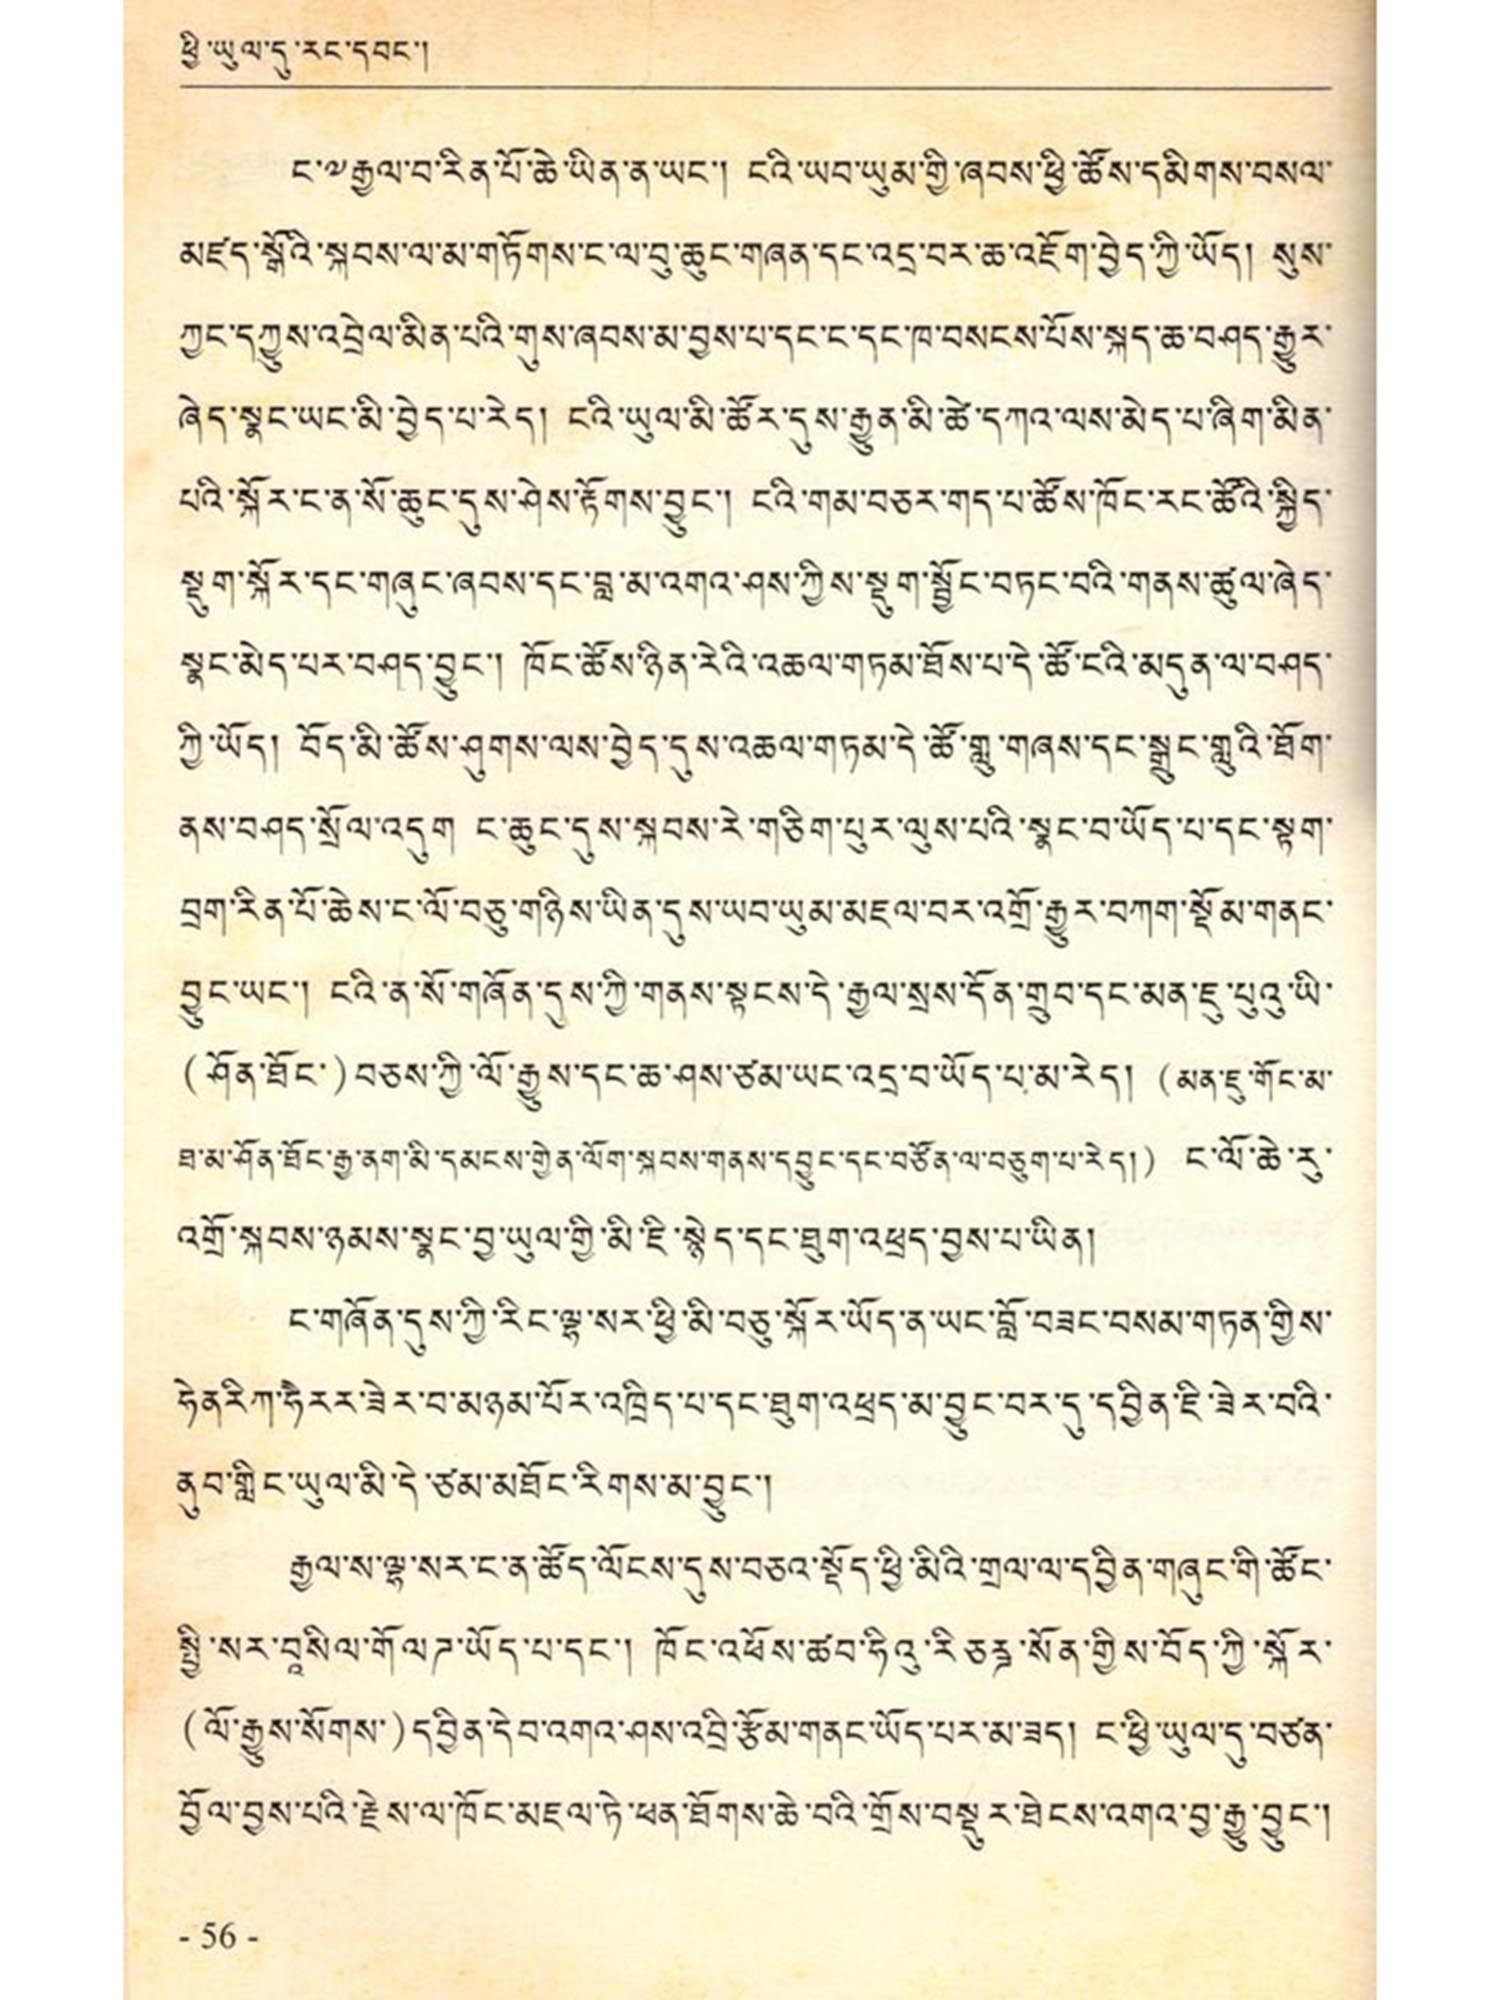 ཕྱི་ཡུལ་དུ་རང་དབང་།
ང་༧རྒྱལ་བ་རིན་པོ་ཆེ་ཡིན་ན་ཡང་། ངའི་ཡབ་ཡུམ་གྱི་ཞབས་ཕྱི་ཚོས་དམིགས་བསལ་
མཛད་སྒོའི་སྐབས་ལ་མ་གཏོགས་ང་ལ་བུ་ཆུང་གཞན་དང་འདྲ་བར་ཆ་འཇོག་བྱེད་ཀྱི་ཡོད། སུས་
ཀྱང་དཀྱུས་འབྲེལ་མིན་པའི་གུས་ཞབས་མ་བྱས་པ་དང་ང་དང་ཁ་བསངས་པོས་སྐད་ཆ་བཤད་རྒྱུར་
ཞེད་སྣང་ཡང་མི་བྱེད་པ་རེད། ངའི་ཡུལ་མི་ཚོར་དུས་རྒྱུན་མི་ཚེ་དཀའ་ལས་མེད་པ་ཞིག་མིན་
པའི་སྐོར་ང་ན་སོ་ཆུང་དུས་ཤེས་རྟོགས་བྱུང་། ངའི་གམ་བཅར་གད་པ་ཚོས་ཁོང་རང་ཚོའི་སྐྱིད་
སྡུག་སྐོར་དང་གཞུང་ཞབས་དང་བླ་མ་འགའ་ཤས་ཀྱིས་སྡུག་སྦྱོང་བཏང་བའི་གནས་ཚུལ་ཞེད་
སྣང་མེད་པར་བཤད་བྱུང་། ཁོང་ཚོས་ཉིན་རེའི་འཆལ་གཏམ་ཐོས་པ་དེ་ཚོ་ངའི་མདུན་ལ་བཤད་
ཀྱི་ཡོད། བོད་མི་ཚོས་ཤུགས་ལས་བྱེད་དུས་འཆལ་གཏམ་དེ་ཚོ་གླུ་གཞས་དང་སྒྲུང་གླུའི་ཐོག་
ནས་བཤད་སྲོལ་འདུག ང་ཆུང་དུས་སྐབས་རེ་གཅིག་པུར་ལུས་པའི་སྣང་བ་ཡོད་པ་དང་སྟག་
བྲག་རིན་པོ་ཆེས་ང་ལོ་བཅུ་གཉིས་ཡིན་དུས་ཡབ་ཡུམ་མཇལ་བར་འགྲོ་རྒྱུར་བཀག་སྡོམ་གནང་
བྱུང་ཡང་། ངའི་ན་སོ་གཞོན་དུས་ཀྱི་གནས་སྟངས་དེ་རྒྱལ་སྲས་དོན་གྲུབ་དང་མན་ཇུ་པུའུ་ཡི་
(ཤོན་ཐོང་)བཅས་ཀྱི་ལོ་རྒྱུས་དང་ཆ་ཤས་ཙམ་ཡང་འདྲ་བ་ཡོད་པ་མ་རེད། (མན་ཇུ་གོང་མ་
ཐ་མ་ཤོན་ཐོང་རྒྱ་ནག་མི་དམངས་གྱེན་ལོག་སྐབས་གནས་དབྱུང་དང་བཙོན་ལ་བཅུག་པ་རེད།) ང་ལོ་ཆེ་རུ་
འགྲོ་སྐབས་ཉམས་སྣང་བྱ་ཡུལ་གྱི་མི་ཇི་སྙེད་དང་ཐུག་འཕྲད་བྱས་པ་ཡིན།
ང་གཞོན་དུས་ཀྱི་རིང་ལྷ་སར་ཕྱི་མི་བཅུ་སྐོར་ཡོད་ན་ཡང་བློ་བཟང་བསམ་གཏན་གྱིས་
ཧེནརིཀ་ཧཻརར་ཟེར་བ་མཉམ་པོར་འཁྲིད་པ་དང་ཐུག་འཕྲད་མ་བྱུང་བར་དུ་དབྱིན་ཇི་ཟེར་བའི་
ནུབ་གླིང་ཡུལ་མི་དེ་ཙམ་མཐོང་རིགས་མ་བྱུང་།
རྒྱལ་ས་ལྷ་སར་ང་ན་ཚོད་ལོངས་དུས་བཅའ་སྡོད་ཕྱི་མིའི་གྲལ་ལ་དབྱིན་གཞུང་གི་ཚོང་
སྤྱི་སར་བཱསིལ་གོལཌ་ཡོད་པ་དང་། ཁོང་འཕོས་ཚབ་ཧིའུ་རིཅརྡ་སོན་གྱིས་བོད་ཀྱི་སྐོར་
(ལོ་རྒྱུས་སོགས་)དབྱིན་དེབ་འགའ་ཤས་འབྲི་རྩོམ་གནང་ཡོད་པར་མ་ཟད། ང་ཕྱི་ཡུལ་དུ་བཙན་
བྱོལ་བྱས་པའི་རྗེས་ལ་ཁོང་མཇལ་ཏེ་ཕན་ཐོགས་ཆེ་བའི་གྲོས་བསྡུར་ཐེངས་འགའ་བྱ་རྒྱུ་བྱུང་།
- 56 -